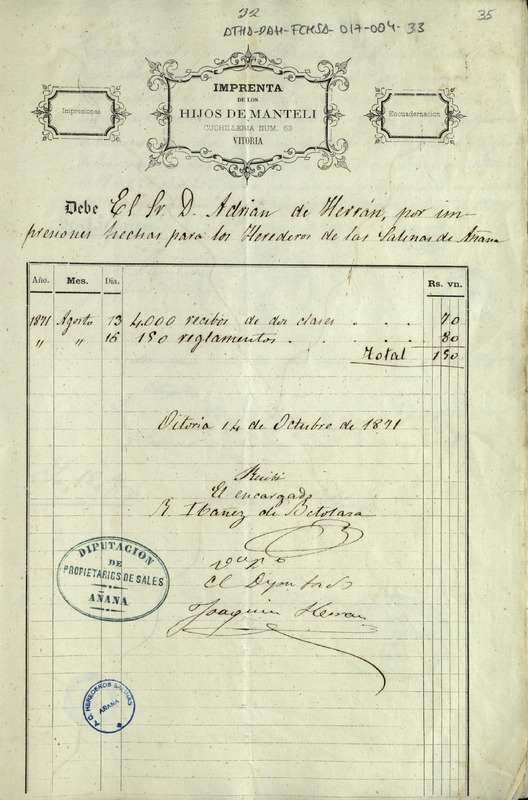 32
35
ATHA-DAH-FCHSA-017-004-33
IMPRENTA
DE LOS
HIJOS DE MANTELI
CUCHILLERIA NUM. 63
VITORIA
Impresiones
Encuadernacion
Debe El Sr. D. Adrian de Herrán, por im-
presiones hechas para los Herederos de las Salinas de Añana
Año. Mes. Dia. Rs. vn.
1871 Agosto 13 4.000 recibos de dos clases . . . . 70
" " 15 150 reglamentos . . . . 80
Total 150
Vitoria 14 de Octubre de 1871
Recibí
El encargado
R. Ibañez de Betolaza
El Diputado
Joaquin Herrán
DIPUTACION
DE
PROPIETARIOS DE SALES
AÑANA
HEREDEROS SALINAS
AÑANA